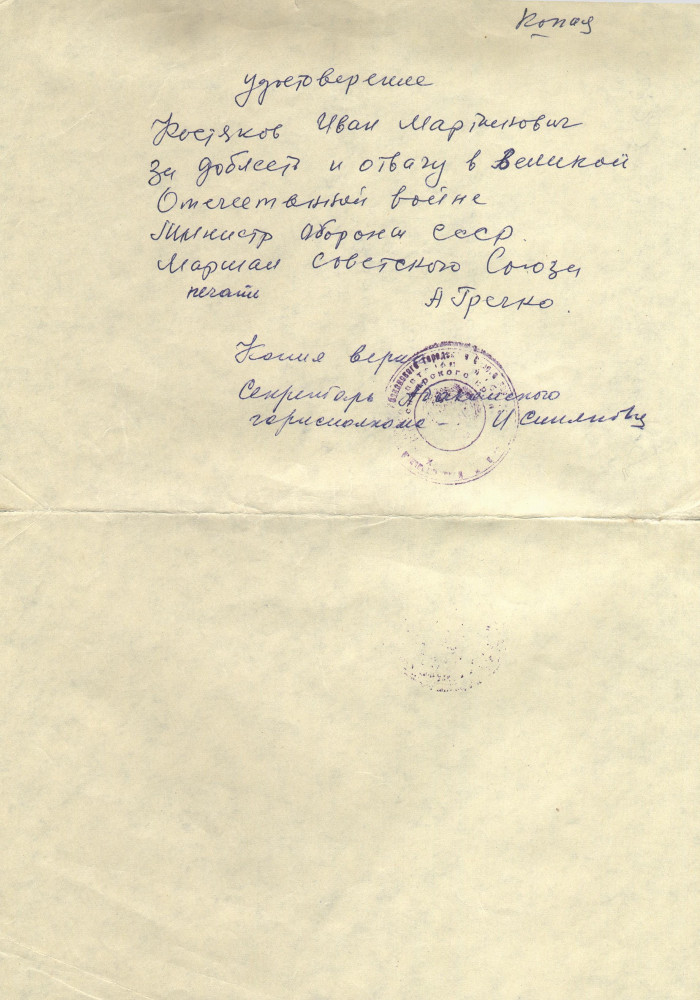 Копия
Удостоверение
Костяков Иван Мартынович
За доблесть и отвагу в Великой
Отечественной войне
Министр Обороны СССР.
Маршал Советского Союза
печать А Гречко.
Копия верна
Секретарь
горисполкома -